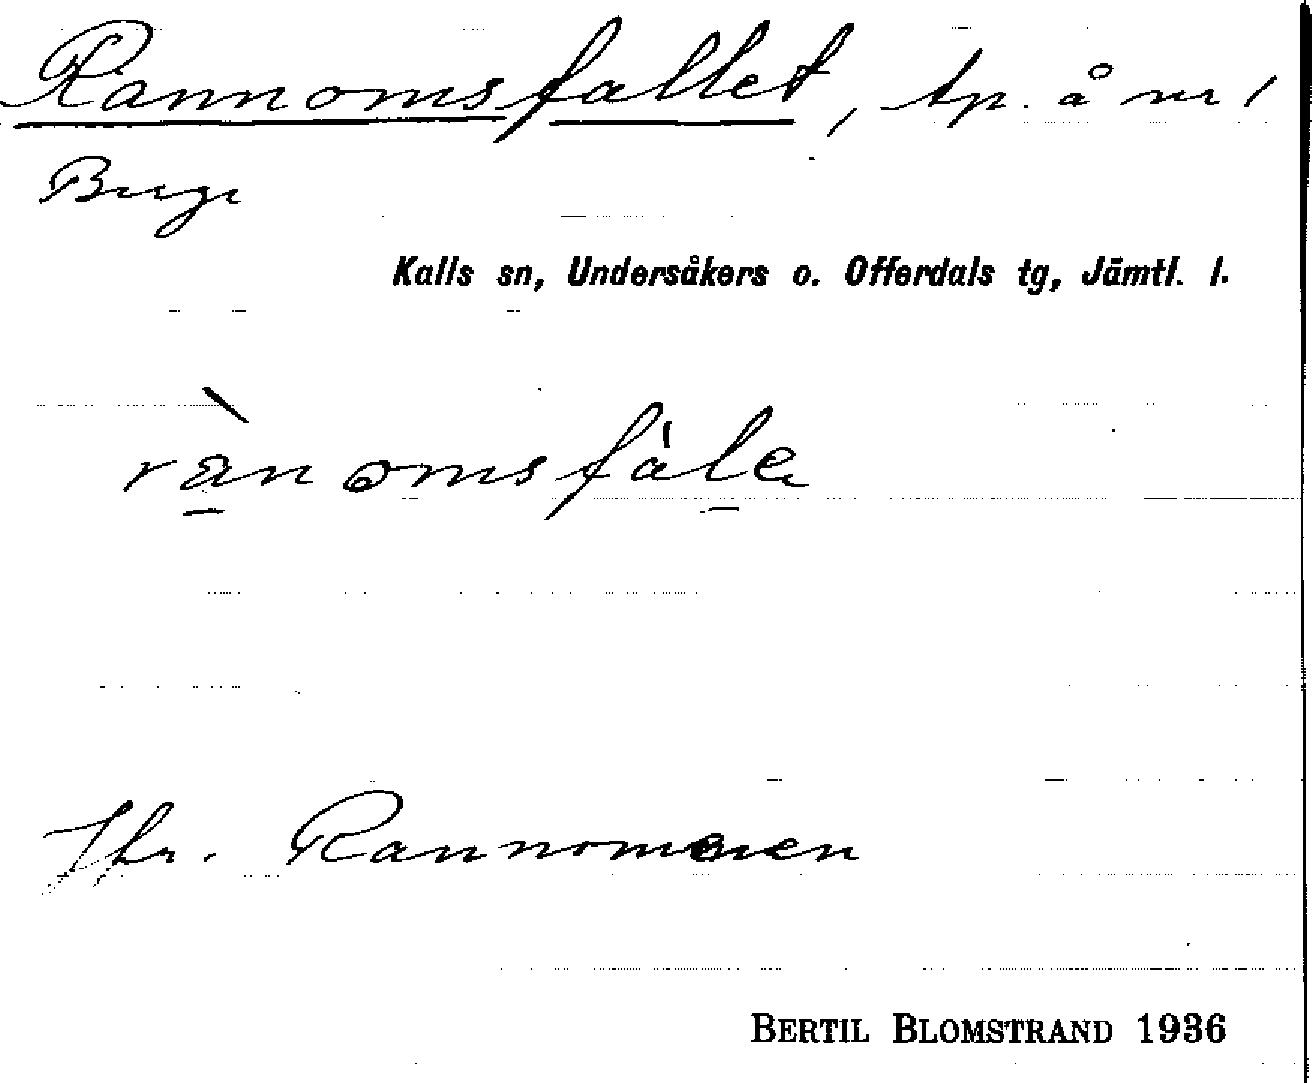 Rannomsfallet, tp. å nr 1
Berge
Kalls sn, Undersåkers o. Offerdals tg, Jämtl. l.
rànomsfále
Jfr. Rannommen
BERTIL BLOMSTRAND 1936